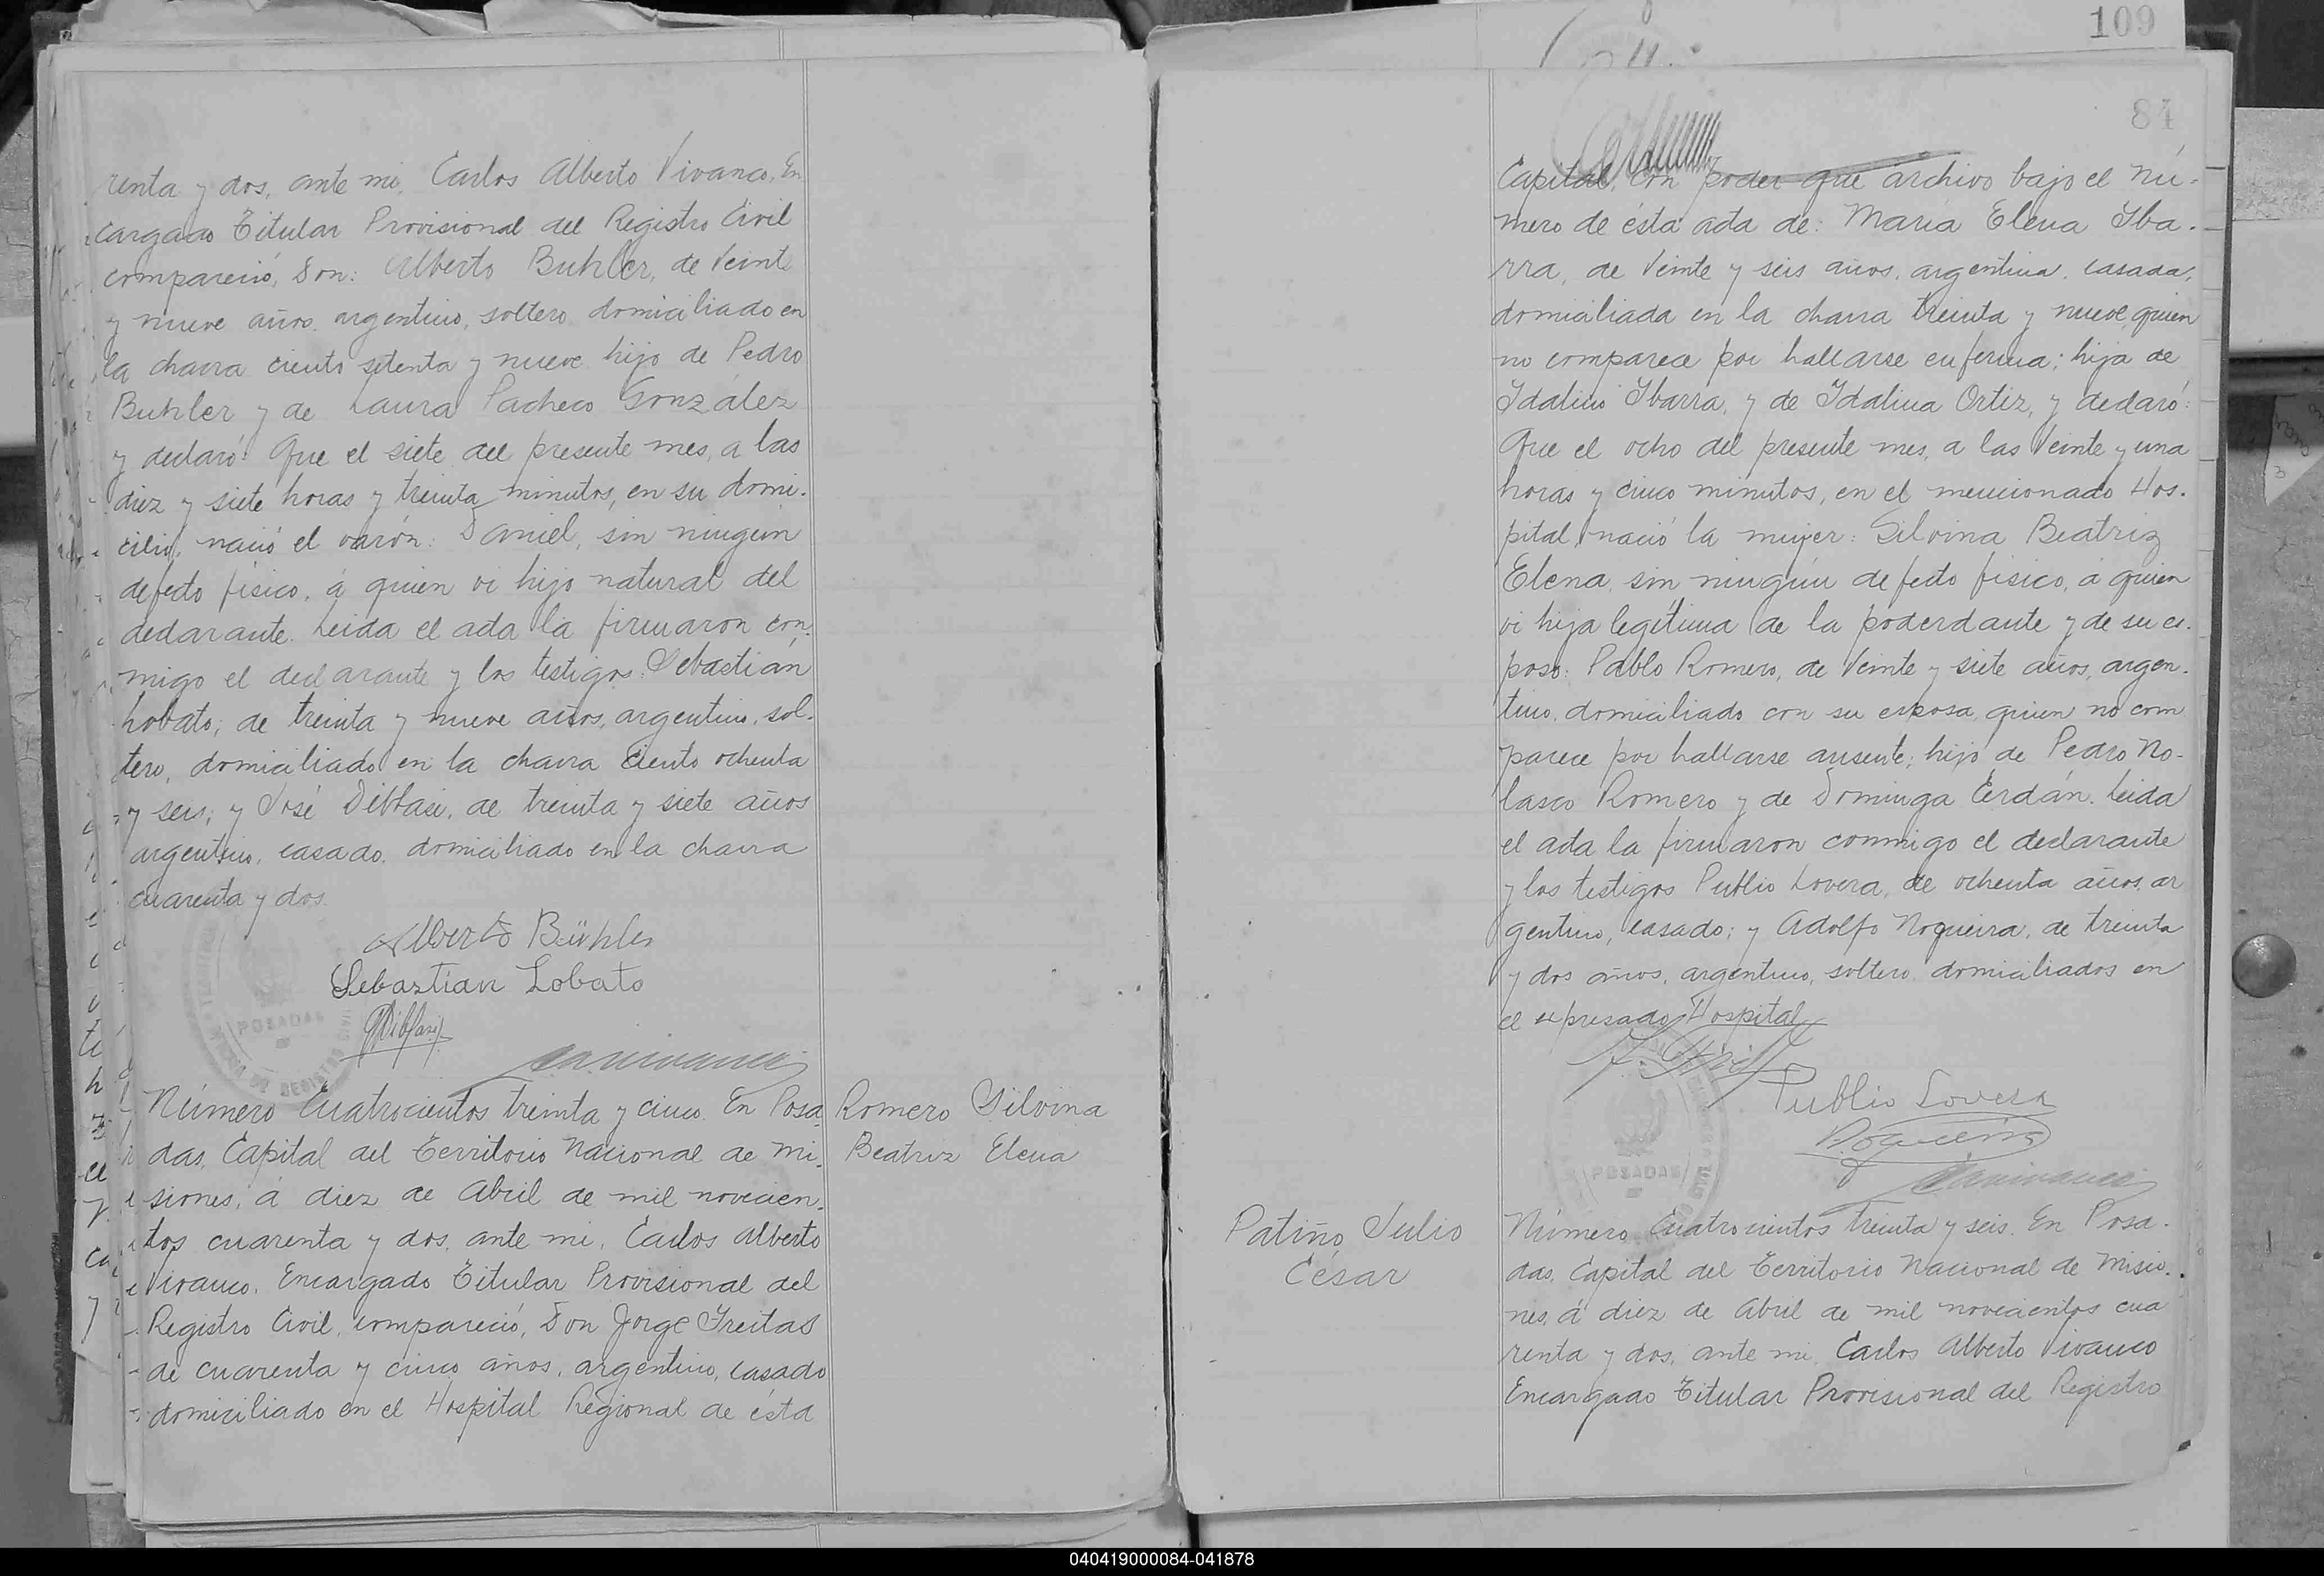 109
84
renta y dos, ante mi, Carlos Alberto Vivanco, En
cargado Titular Provisional del Registro Civil
compareció, Don: Alberto Buhler, de veinte
y nueve años, argentino, soltero domiciliado en
la chacra ciento setenta y nueve hijo de Pedro
Buhler y de Laura Pacheco González
y declaró: Que el siete del presente mes, a las
diez y siete horas y treinta minutos, en su domi-
cilio, nació el varón: Daniel, sin ningún
defecto físico, á quien vi hijo natural del
declarante. Leida el acta la firmaron con-
migo el declarante y los testigos: Sebastián
Lobato, de treinta y nueve años, argentino, sol-
tero, domiciliado en la chacra ciento ochenta
y seis; y José Diblasi, de treinta y siete años
argentino, casado, domiciliado en la chacra
cuarenta y dos.
Alberto Bühler
Sebastian Lobato
POSADAS
Número Cuatrocientos treinta y cinco. En Posa-
das, Capital del Territorio Nacional de Mi-
siones, á diez de Abril de mil novecien-
tos cuarenta y dos, ante mi, Carlos Alberto
Vivanco, Encargado Titular Provisional del
Registro Civil, compareció, Don Jorge Freitas
de cuarenta y cinco años, argentino, casado
domiciliado en el Hospital Regional de ésta
Romero Silvina
Beatriz Elena
Capital, con poder que archivo bajo el nú-
mero de ésta acta de: María Elena Iba-
rra, de veinte y seis años, argentina, casada,
domiciliada en la chacra treinta y nueve, quien
no comparece por hallarse enferma; hija de
Idalino Ibarra, y de Idalina Ortiz, y declaró:
Que el ocho del presente mes, a las veinte y una
horas y cinco minutos, en el mencionado Hos-
pital, nació la mujer: Silvina Beatriz
Elena, sin ningún defecto físico, á quien
vi hija legítima de la poderdante y de su es-
poso: Pablo Romero, de veinte y siete años, argen-
tino, domiciliado con su esposa, quien no com
parece por hallarse ausente; hijo de Pedro No-
lasco Romero y de Dominga Cerdán. Leida
el acta la firmaron conmigo el declarante
y los testigos Publio Lovera, de ochenta años, ar
gentino, casado; y Adolfo Noqueira, de treinta
y dos años, argentino, soltero, domiciliados en
el expresado Hospital
Publio Lovera
POSADAS
Patiño Julio
César
Número Cuatrocientos treinta y seis. En Posa-
das, Capital del Territorio Nacional de Misio-
nes, á diez de Abril de mil novecientos cua
renta y dos, ante mi, Carlos Alberto Vivanco
Encargado Titular Provisional del Registro
040419000084-041878